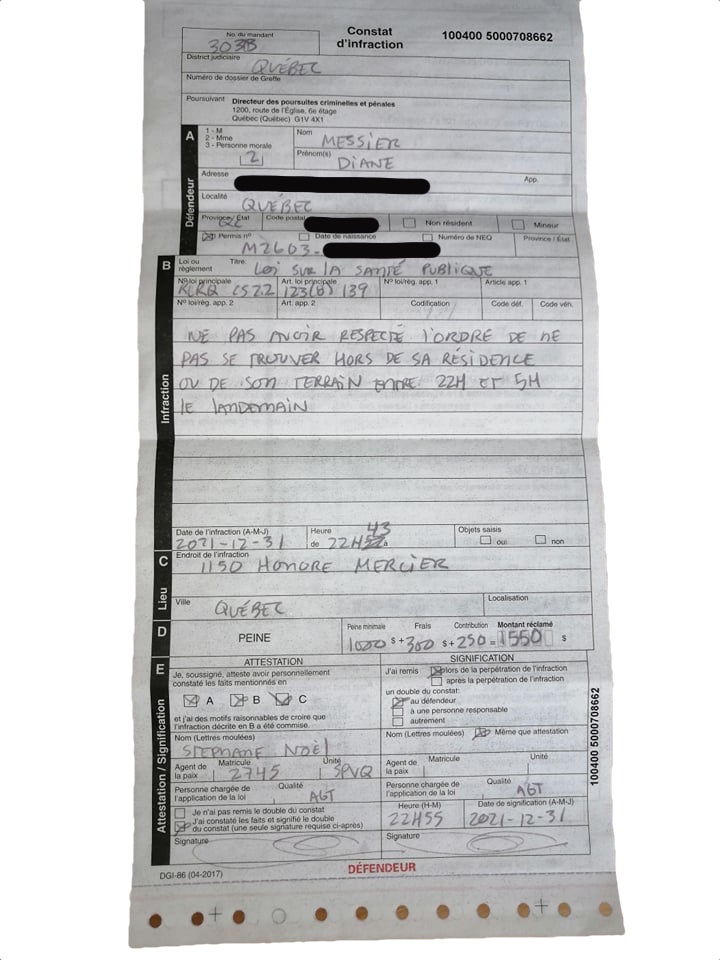 No. du mandant
303B
Constat
d'infraction
100400 5000708662
District judiciaire
QUÉBEC
Numéro de dossier de Greffe
Poursuivant Directeur des poursuites criminelles et pénales
1200, route de l'Église, 6e étage
Québec (Québec) G1V 4X1
A
Défendeur
1 - M
2 - Mme
3 - Personne morale
2
Nom
MESSIER
Prénom(s)
DIANE
Adresse
App.
Localité
QUÉBEC
Province/ État
QC
Code postal
Non résident
Mineur
Permis n°
M2603-
Date de naissance
Numéro de NEQ
Province / État
B
Infraction
Loi ou
règlement
Titre:
LOI SUR LA SANTÉ PUBLIQUE
N° loi principale
RLRQ CS2.2
Art. loi principale
123(8) 139
N° loi/rég. app. 1
Article app. 1
N° loi/rég. app. 2
Art. app. 2
Codification
Code déf.
Code vén.
NE PAS AVOIR RESPECTÉ l'ORDRE DE NE
PAS SE TROUVER HORS DE SA RÉSIDENCE
OU DE SON TERRAIN ENTRE 22H ET 5H
lE lANDEMAIN
Date de l'infraction (A-M-J)
2021-12-31
Heure
de 22H 43
à
Objets saisis
oui
non
C
Lieu
Endroit de l'infraction
1150 HONORE MERCIER
Ville
QUÉBEC
Localisation
D
PEINE
Peine minimale Frais Contribution Montant réclamé
1000 $ + 300 $ + 250 = 1550 $
E
Attestation / Signification
ATTESTATION
Je, soussigné, atteste avoir personnellement
constaté les faits mentionnés en
A B C
et j'ai des motifs raisonnables de croire que
l'infraction décrite en B a été commise.
Nom (Lettres moulées)
STEPHANE NOËL
Agent de
la paix
Matricule
2745
Unité
SPVQ
Personne chargée de
l'application de la loi
Qualité
AGT
Je n'ai pas remis le double du constat
J'ai constaté les faits et signifié le double
du constat (une seule signature requise ci-après)
Signature
SIGNIFICATION
J'ai remis
lors de la perpétration de l'infraction
après la perpétration de l'infraction
un double du constat:
au défendeur
à une personne responsable
autrement
Nom (Lettres moulées)
Même que attestation
Agent de
la paix
Matricule
Unité
Personne chargée de
l'application de la loi
Qualité
AGT
Heure (H-M)
22H55
Date de signification (A-M-J)
2021-12-31
Signature
100400 5000708662
DGI-86 (04-2017)
DÉFENDEUR